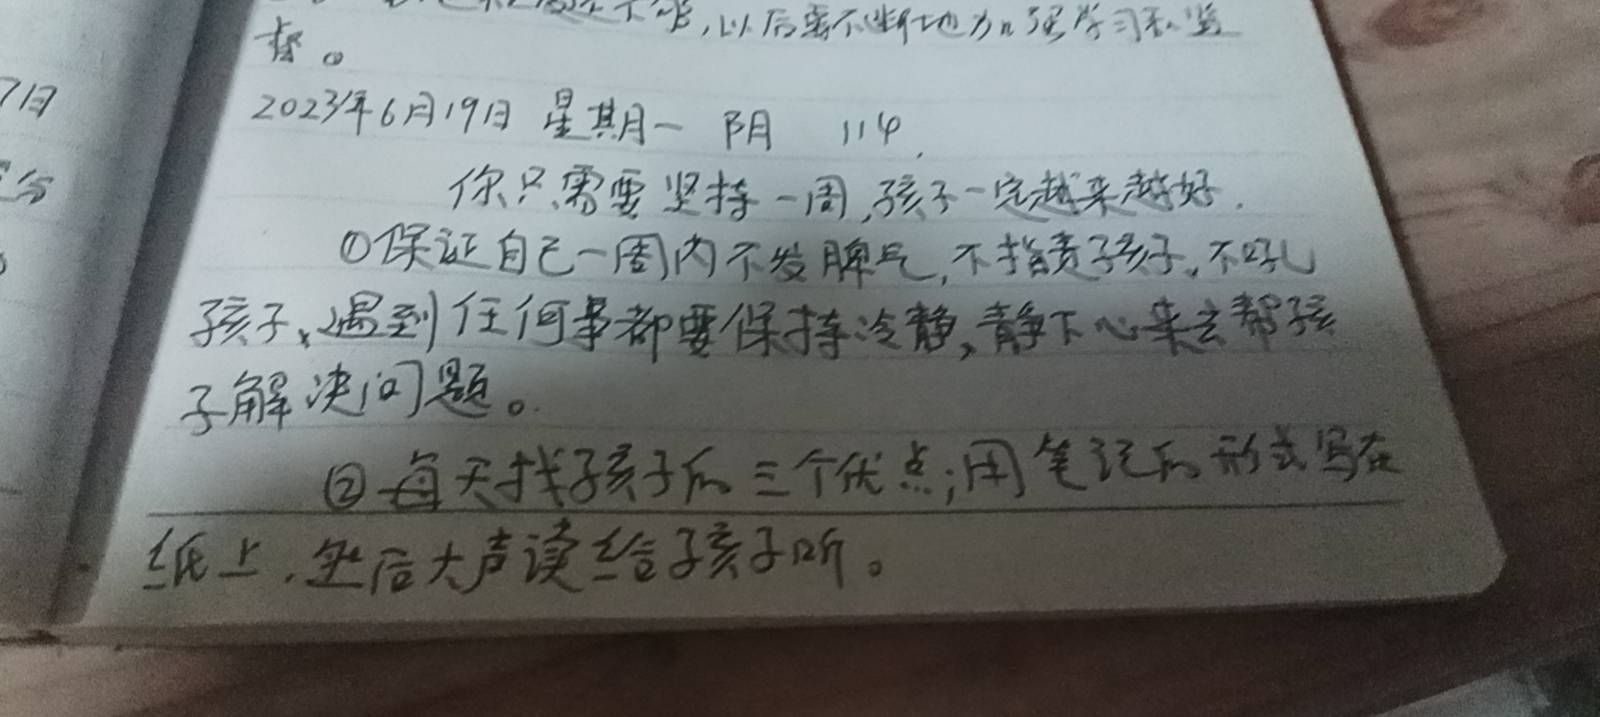 不能,以后需不断地加强学习和监
督。
7日
2023年6月19日 星期一 阴 114.
你只需要坚持一周,孩子一定越来越好.
①保证自己一周内不发脾气,不指责孩子、不吼
孩子、遇到任何事都要保持冷静,静下心来去帮孩
子解决问题。
②每天找孩子的三个优点;用笔记的形式写在
纸上.然后大声读给孩子听。